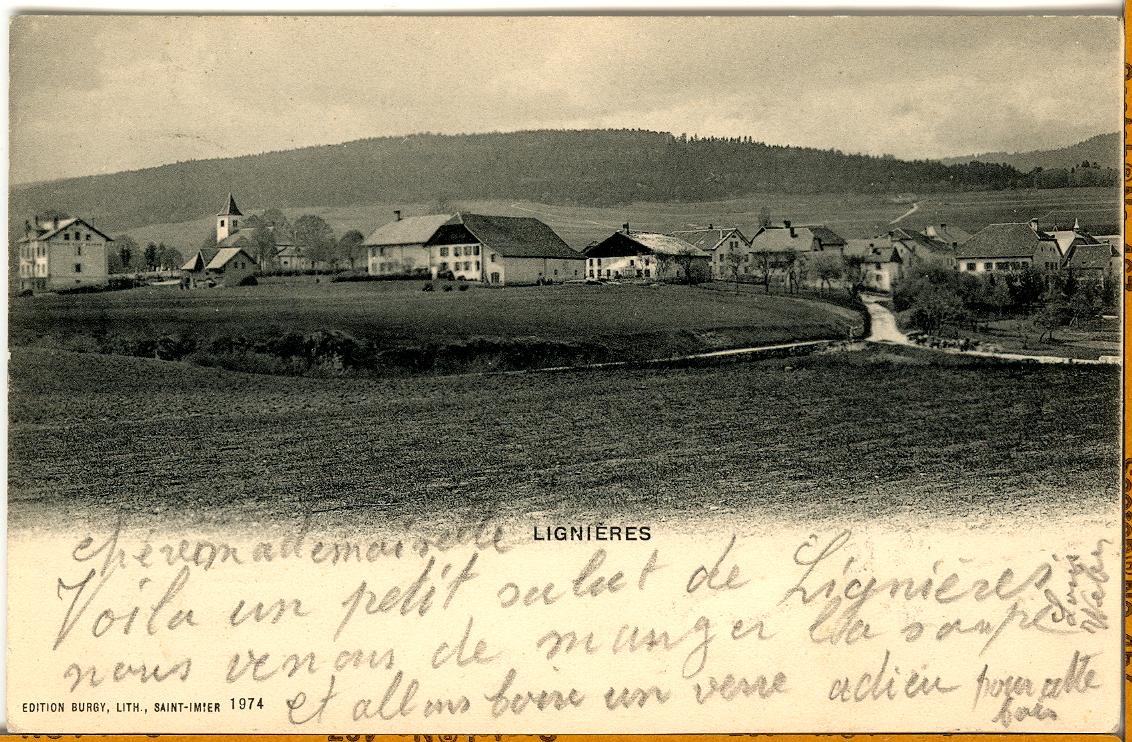 LIGNIÈRES
chère mademoiselle
Voila un petit salut de Lignières
nous venons de manger la soupe
et allons boire un verre adieu pour cette
fois
Weber
EDITION BURGY, LITH., SAINT-IMIER 1974